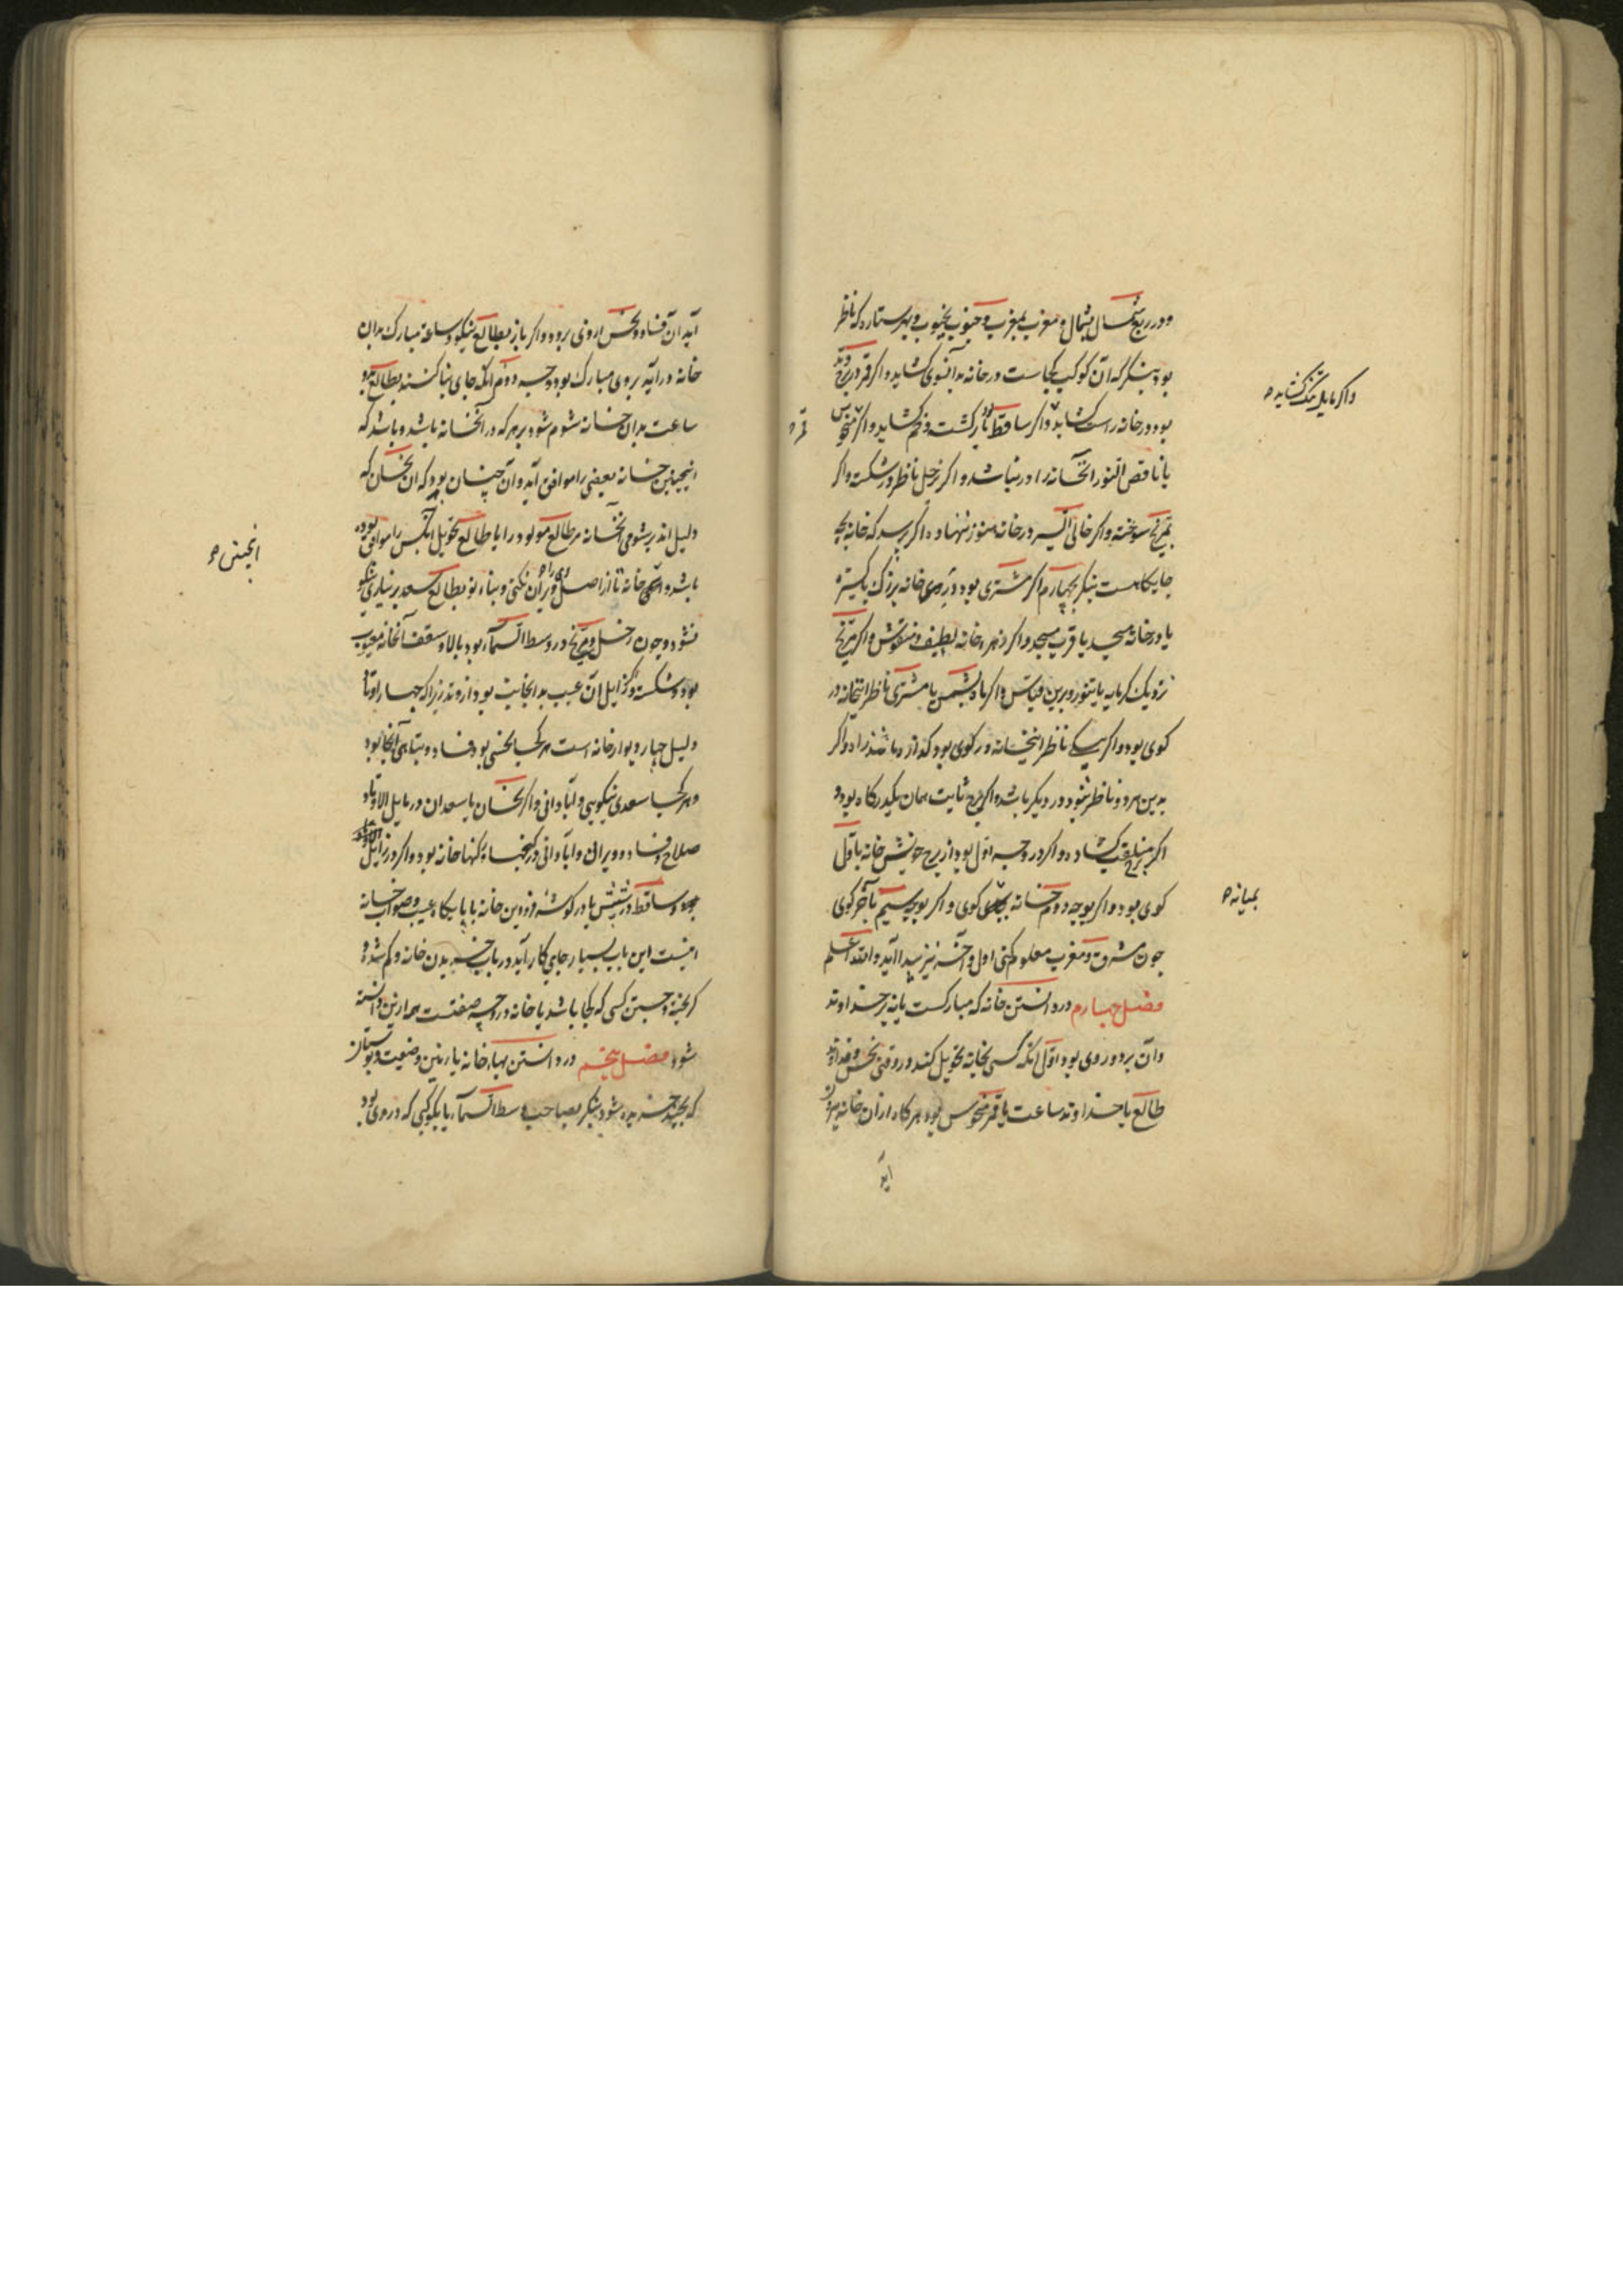 ودر ربع شمال بشمال ومغرب بمغرب وجنوب بجنوب وبهر ستاره که ناظر
بود بنگر که آن کوکب کجاست در خانه بدانسوی کشاید واکر قمر در برج وتد
بود در خانه راست کشاید واکر ساقط بود باز کشت وخم کشاید واکر منحوس
واکر مایل تنک کشاید
قمر
یا ناقص النور انخانه را در نباشد واکر زحل ناظر در شکسته واکر
مریخ سوخته واکر خالی السیر در خانه هنوز ننهاده واکر پرسد که خانه بچه
جایکاهست بنکر بچهارم اکر مشتری بود در وی خانه بزرگ باکستره
یا در خانه مسجد یا قرب مسجد واکر زهره خانه لطیف ومنقوش واکر مریخ
نزدیک کرمابه یا تنور وبرین قیاس واکر ماه بشمس یا مشتری ناظر اینخانه در
کوی بود واکر بیکی ناظر اینخانه در کوی بود که از دها شد را واکر
بدین هر دو ناظر نبود در دیکر باشد واکر برج ثابت همان یکدر کاه بود و
اکر منقلب کشاده واکر در وجه اول بود از برج خویش خانه باول
کوی بود واکر بوجه دوم خانه کوی واکر بوجه سیم بآخر کوی
بمیانه
چون مشرق ومغرب معلوم کنی اول وآخر نیز پیدا آید والله اعلم
فصل چهارم در دانستن خانه که مبارکست یا نه بر خداوند
وآن بر دو روی بود اول انکه کسی بخانه تحویل کند در وقتی نحس وخداوند
طالع یا خداوند ساعت یا قمر منحوس بود هرکاه از آن خانه بیرون
اید
آید آن فساد ونحس از وی برود واکر باز بطالع نیکو وساعة مبارک بدان
خانه در آید بروی مبارک بود وجه دوم انکه جای بنا کنند بطالع بد و
ساعت بد آن خانه شوم شود بر هر که در آنخانه باشد وباشد که
اینچنین خانه بعضی را موافق آید وآن چنان بود که آن نحسان که
دلیل اند بر شومی انخانه مر طالع مولود را یا طالع تحویل انکس را موافق بوده
انجنس
باشد و خانه تا از اصل ویران نکنی وبناء نو بطالع سعد بر نیاری نیکو
نشود وچون زحل ومریخ در وسط السماء بود بالا وسقف آنخانه معیوب
بود وشکسته وکژ ایل آن عیب بدانجانب بود از وتد زیراکه چهار اوتاد
دلیل چهار دیوار خانه است هر کجا نحسی بود فساد وتباهی آنجا بود
وهر کجا سعدی نیکویی وآبادانی واکر نحسان یا سعدان در مایل الاوتاد
صلاح وفساد وویران وآبادانی در کنجها ورکنها خانه بود واکر در زایل
وساقط در ششش یا در کوشه فرودین خانه یا پایکاه عیب وصواب خانه
اینست این باب بسیار جای کار آید در باب خریدن خانه وکم شده و
کریخته وجستن کسی که کجا باشد یا خانه در چه صفتست همه ازین دانسته
شود فصل پنجم در دانستن بهاء خانه یا زمین وضیعت وبوستان
که بچند خریده شود بنکر بصاحب وسط السماء یا بکوکبی که در وی بود